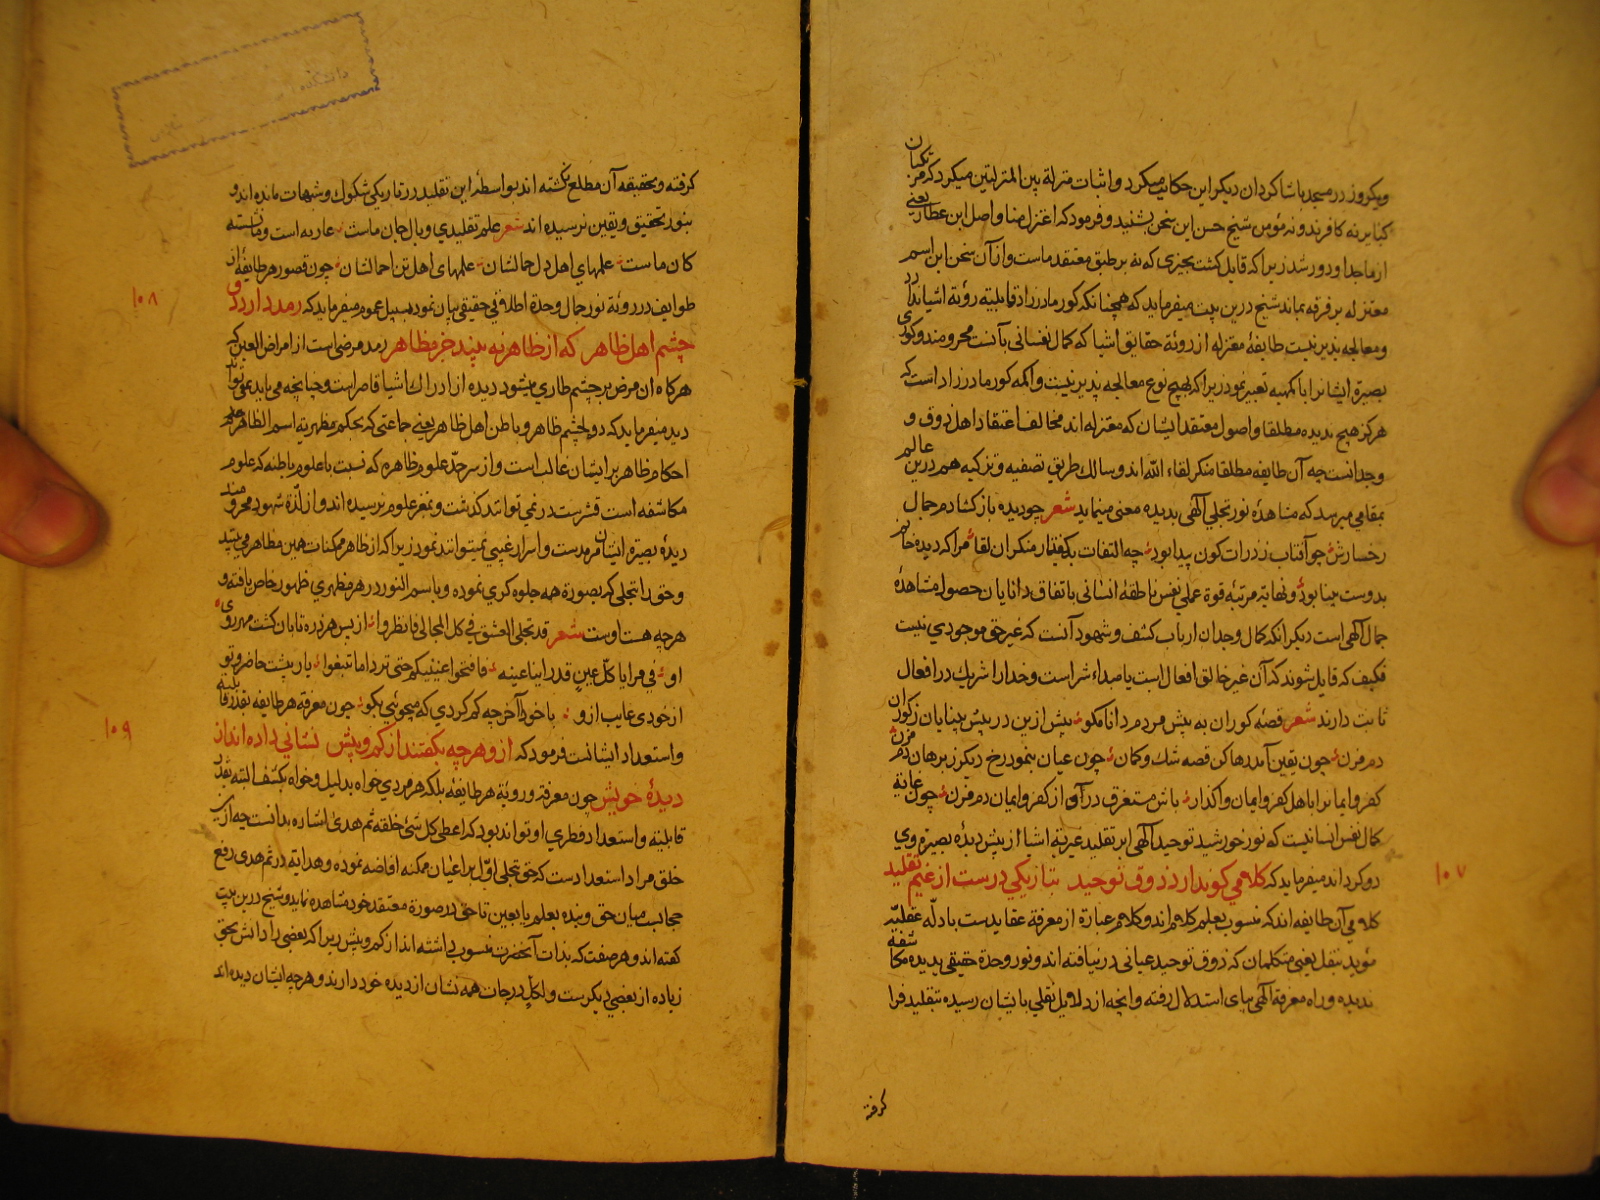 ویکروز در مسجد باشاکردان دیکر این حکایت میکرد و اثبات منزلة بین المنزلتین میکرد که مرتکبان
کبایر نه کافرند و نه مؤمن شیخ حسن این سخن بشنید و فرمود که اعتزل عنا واصل ابن عطا یعنی
از ما جدا و دور شد زیرا که قایل کشت بچیزی که نه بر طبق معتقد ماست و از آن سخن این اسم
معتزله بر فرقه بماند شیخ درین بیت میفرماید که همچنانکه کور مادرزاد قابلیة رؤیة اشیا ندارد
ومعالجه پذیر نیست طایفهٔ معتزله از رؤیة حقایق اشیا که کمال نفسانی بآنست محرومند و کوری
بصیرة ایشانرا باکمهیه تعبیر نمود زیرا که بهیچ نوع معالجه پذیر نیست واکمه کور مادرزاد است که
هرکز هیچ ندیده مطلقا و اصول معتقد ایشان که معتزله اند مخالف اعتقاد اهل ذوق و
وجدانست چه آن طایفه مطلقا منکر لقاء الله اند و سالک طریق تصفیه و تزکیه هم درین عالم
بمقامی میرسد که مشاهدهٔ نور تجلی آلهی بدیده معنی مینماید شعر چو دیده باز کشادم جمال
رخسارش چو آفتاب ز ذرات کون پیدا بود چه التفات بکفتار منکران لقا مرا که دیده جانم
بدوست بینا بود و نهایة مرتبهٔ قوة عملی نفس ناطقهٔ انسانی باتفاق دانایان حصول مشاهدهٔ
جمال آلهی است دیکر انکه کمال وجدان ارباب کشف و شهود آنست که غیر حق موجودی نیست
فکیف که قایل شوند که آن غیر خالق افعال است یا مبداء شر است و خدا را شریک در افعال
ثابت دارند شعر قصهٔ کوران به پیش مردم دانا مکو بیش ازین در پیش بینایان ز کوران
دم مزن چون یقین آمد رها کن قصه شک و کمان چون عیان بنمود رخ دیکر ز برهان دم مزن
کفر و ایمانرا باهل کفر و ایمان واکذار باش مستغرق درآو از کفر و ایمان دم مزن چون غایة
کمال نفس انسانیست که نور خورشید توحید آلهی ابر تقلید غیریة اشیا از پیش دیدهٔ بصیرة وی
دور کرداند میفرماید که کلامی کو ندارد ذوق توحید بتاریکی درست از غیم تقلید
کلامی آن طایفه اند که منسوب بعلم کلام اند و کلام عبارة از معرفة عقایدست بادلّهٔ عقلیّه
مؤید بنقل یعنی متکلمان که ذوق توحید عیانی درنیافته اند و نور وحدة حقیقی بدیده مکاشفه
ندیده و راه معرفة آلهی بپای استدلال رفته و انچه از دلایل نقلی بایشان رسیده بتقلید فرا
کرفته
۱۰۷
کرفته و بحقیقه آن مطلع نکشته اند بواسطهٔ این تقلید در تاریکی شکوک و شبهات مانده اند و
بنور تحقیق و یقین نرسیده اند شعر علم تقلیدی وبال جان ماست عاریه است و ما نشسته
کان ماست علمهای اهل دل حمالشان علمهای اهل تن احمالشان چون قصور هر طایفهٔ از
طوایف در رؤیة نور جمال وحدة اطلاقی حقیقی بیان نمود بسبیل عموم میفرماید که رمد دارد دو
چشم اهل ظاهر که از ظاهر نه بیند جز مظاهر رمد مرضی است از امراض العین که
هرکاه ان مرض بر چشم طاری میشود دیده از ادراک اشیا قاصر است و چنانچه می باید نمی تواند
دید میفرماید که دو چشم ظاهر و باطن اهل ظاهر یعنی جماعتی که بحکم مظهریة اسم الظاهر علم
احکام ظاهر بر ایشان غالب است و از سر حدّ علوم ظاهره که نسبت با علوم باطنه که علوم
مکاشفه است قشرست درنمی توانند کذشت و بمغز علوم نرسیده اند و از لذّة شهود محرومند
دیدهٔ بصیرة ایشان مرمدست و اسرار غیبی نمیتوانند نمود زیرا که از ظاهر ممکنات همین مظاهر می بینند
و حق را تجلی که بصورة همه جلوه کری نموده و باسم النور در هر مظهری ظهور خاص یافته و
هرچه هست اوست شعر قد تجلی العشق فی کل المجالی فانظروا از پس هر ذره تابان کشت مهر روی
او فی مرایا کلّ عین قدراینا عینه فافتحوا عینیکم حتی تردا ما تبغوا یار پشت حاضر و تو
از خودی غایب ازو با خود آ آخر چه کم کردی که میجوئی بکو چون معرفة هر طایفه بقدر قابلیّه
و استعداد ایشانست فرمود که ازو هرچه بکفتند از کم و بیش نشانی داده اند از
دیدهٔ خویش چون معرفة و رؤیة هر طایفهٔ بلکه هر مردی خواه بدلیل و خواه بکشف البته بقدر
قابلیّه و استعداد فطری او تواند بود که اعطی کل شئ خلقه ثم هدی اشاره بدانست چه از
خلق مراد استعدادست که حق بتجلی اوّل بر اعیان ممکنه افاضه نموده و هدایة در ثم هدی رفع
حجابست میان حق و بنده بعلم یا بعین تا حق در صورة معتقد خود مشاهده نماید و شیخ درین بیت
کفته اند و هر صفت که بذات آنحضرت منسوب داشته اند از کم و بیش زیرا که بعضی را دانش بحق
زیاده از بعضی دیکرست و لکل درجات همه نشان از دیده خود دارند و هرچه ایشان دیده اند
۱۰۸
۱۰۹